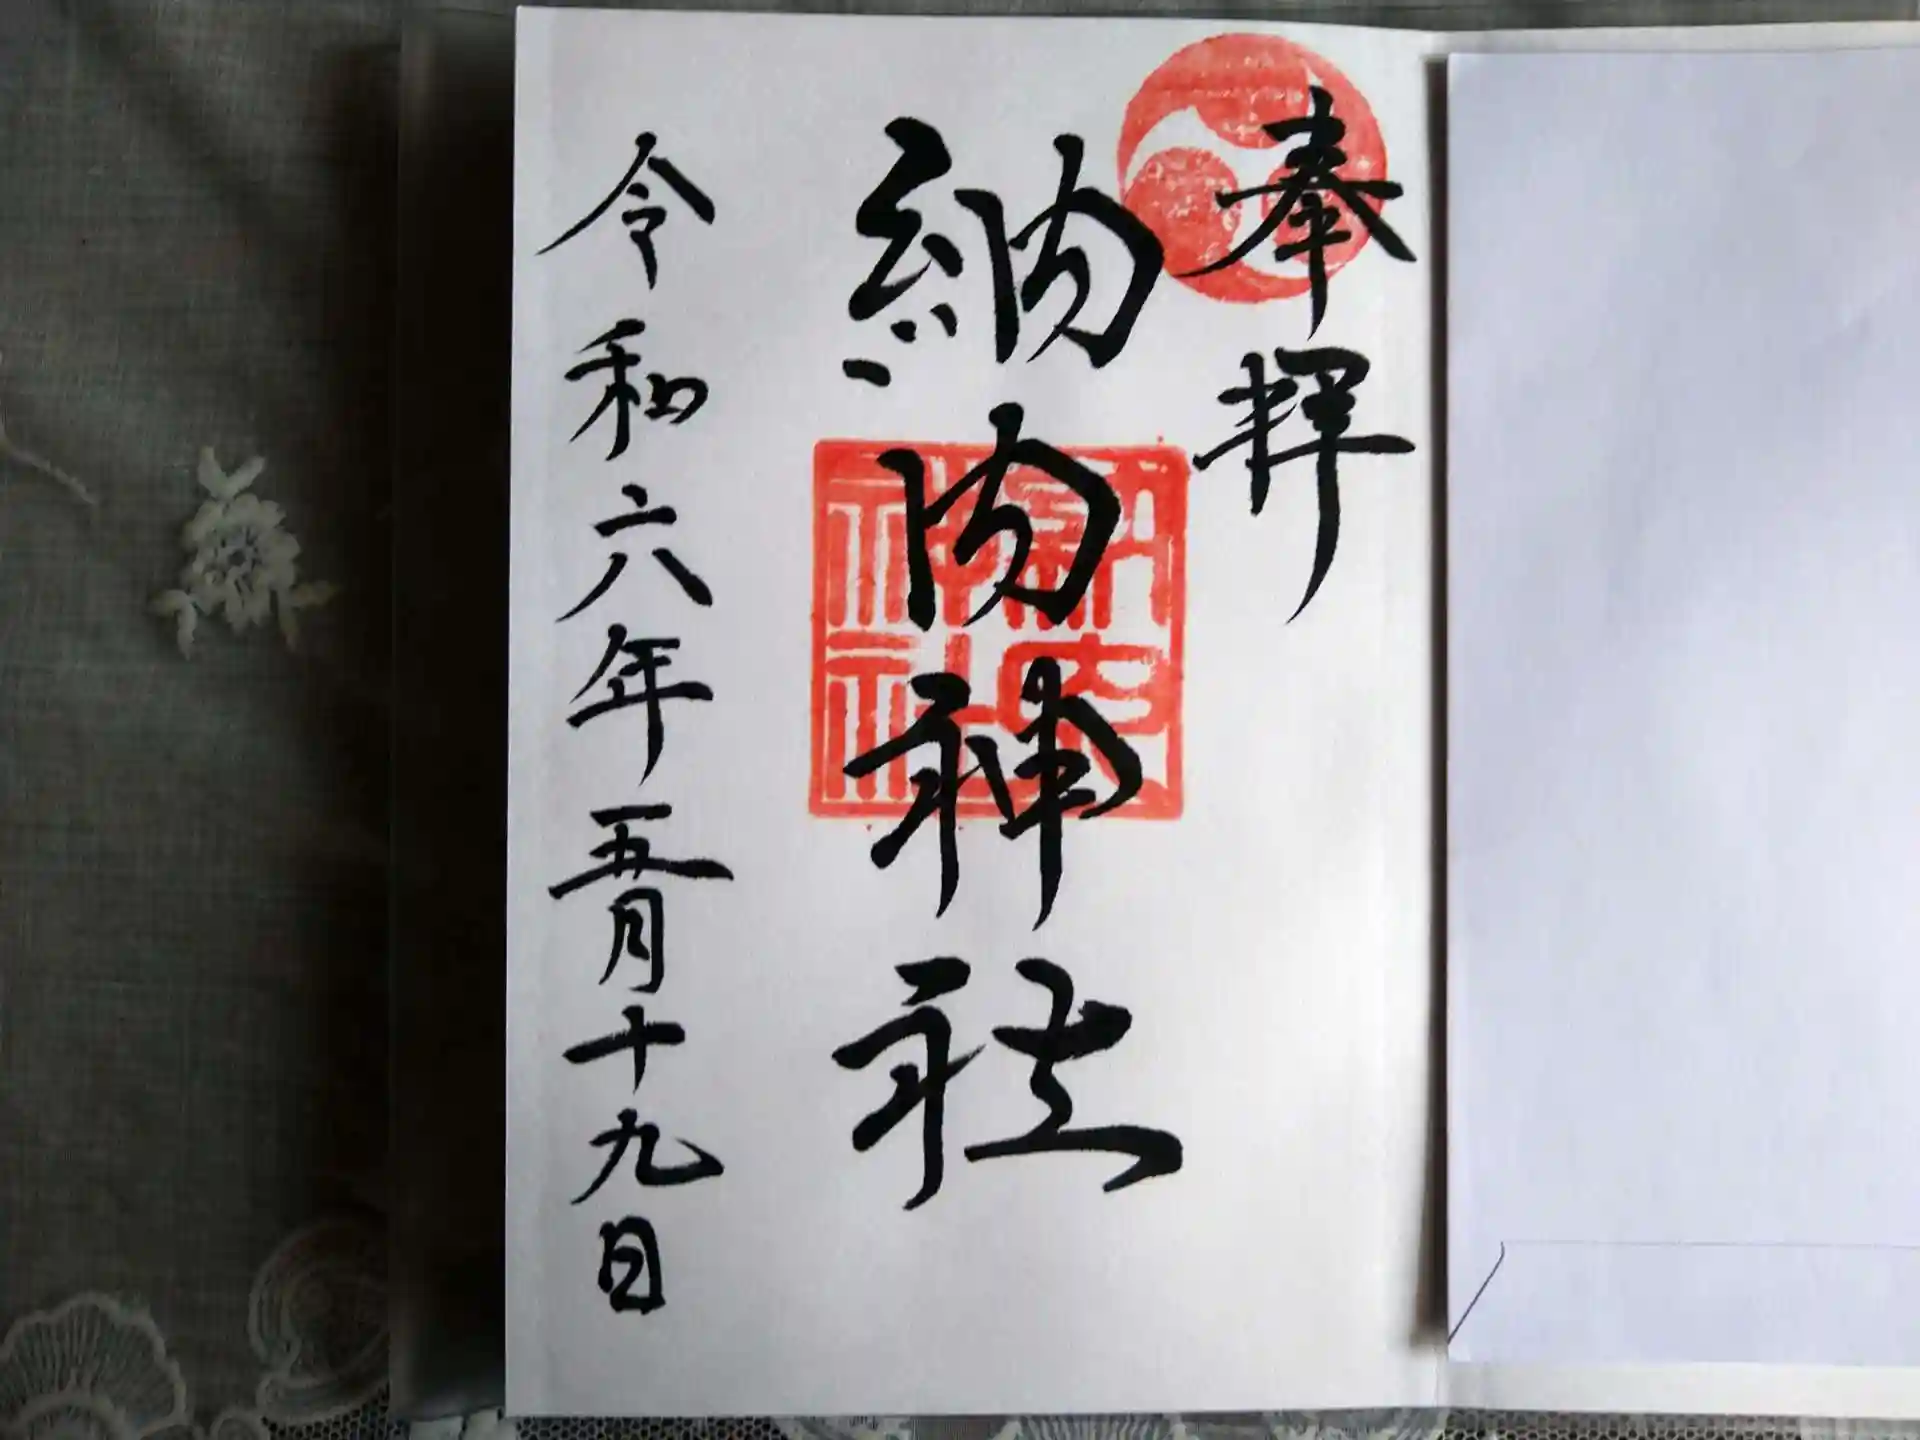 奉拝
納内神社
令和六年五月十九日